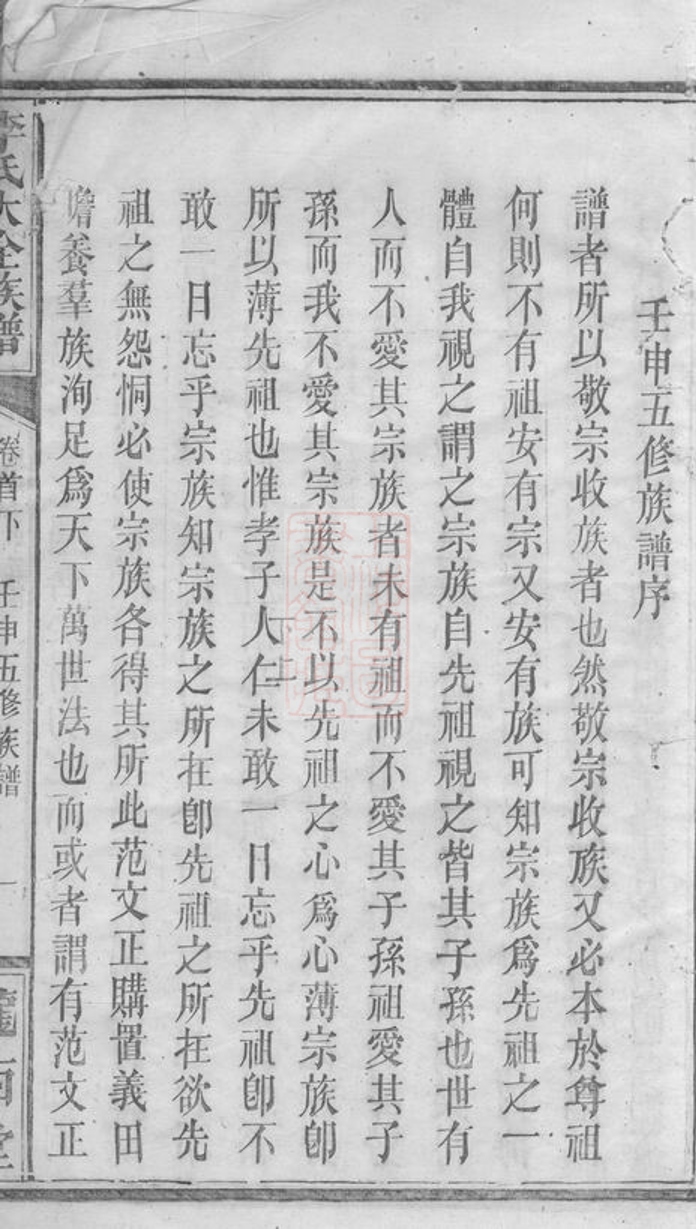 壬申五修族譜序
譜者所以敬宗收族者也然敬宗收族又必本於尊祖
何則不有祖安有宗又安有族可知宗族爲先祖之一
體自我視之謂之宗族自先祖視之皆其子孫也世有
人而不愛其宗族者未有祖而不愛其子孫祖愛其子
孫而我不愛其宗族是不以先祖之心爲心薄宗族卽
所以薄先祖也惟孝子人仁未敢一日忘乎先祖卽不
下上
敢一日忘乎宗族知宗族之所在卽先祖之所在欲先
祖之無怨恫必使宗族各得其所此范文正購置義田
贍養羣族洵足爲天下萬世法也而或者謂有范文正
李氏大全族譜
卷首下
壬申五修族譜
一
隴西堂